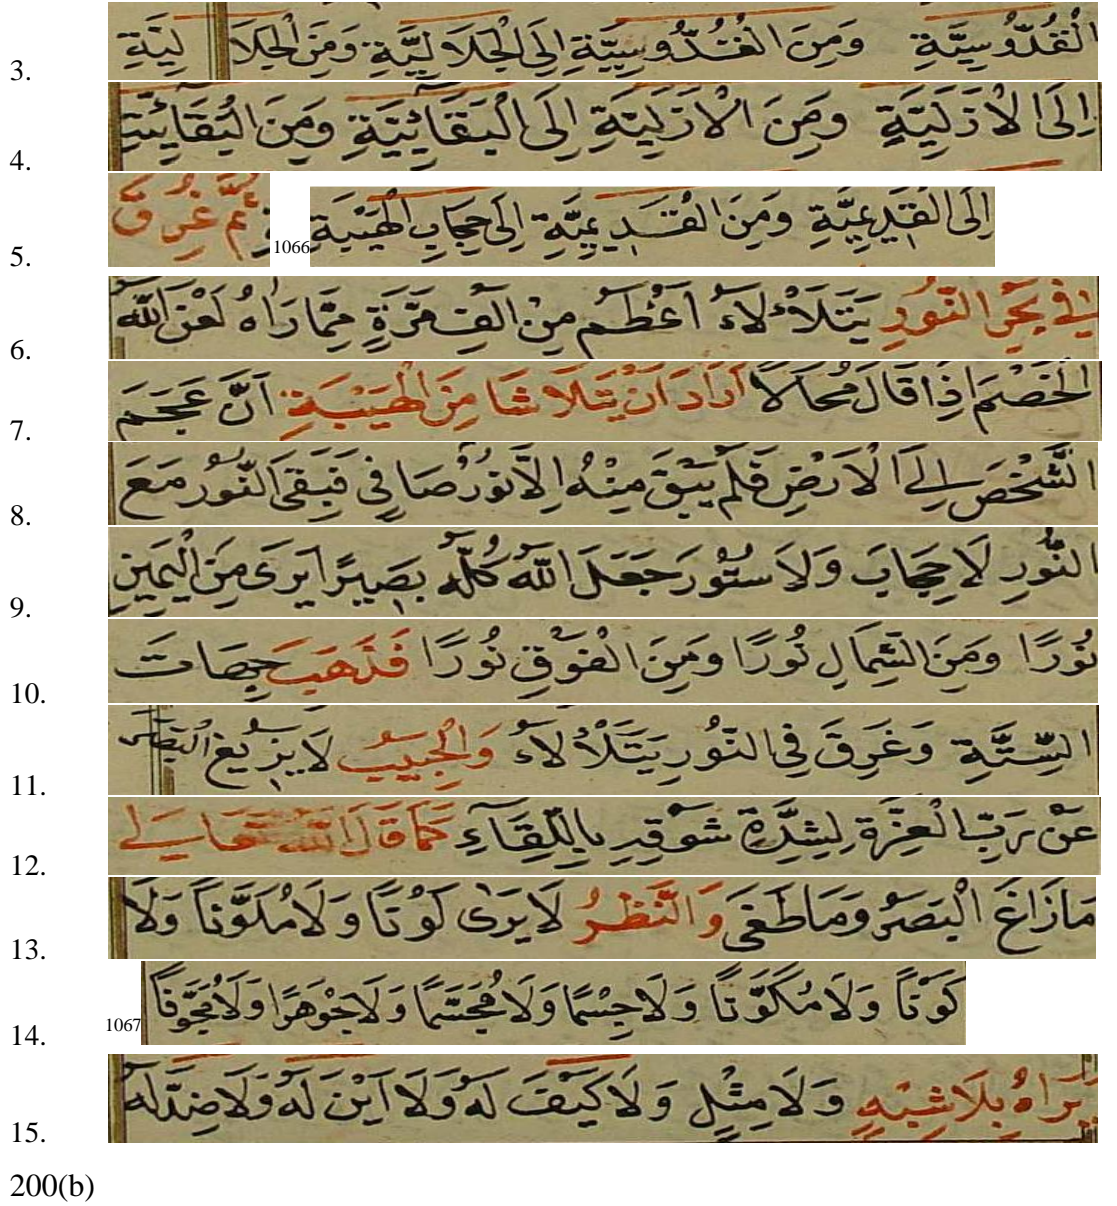 3. الْقُدُّوسِيَّةِ وَمِنَ الْقُدُّوسِيَّةِ اِلَى الْجَلَالِيَّةِ وَمِنَ الْجَلَالِيَّةِ
4. اِلَى الْاَزَلِيَّةِ وَمِنَ الْاَزَلِيَّةِ اِلَى الْبَقَائِيَّةِ وَمِنَ الْبَقَائِيَّةِ
5. اِلَى الْقَدِيمِيَّةِ وَمِنَ الْقَدِيمِيَّةِ اِلَى حِجَابِ الْهَيْبَةِ 1066 ثُمَّ غُرِقَ
6. فِي بَحْرِ النُّورِ يَتَلَأْلَاءُ اَعْظَمُ مِنْ اَلْفِ مَرَّةٍ مِمَّا رَاهُ لَعَنَ اللّٰهُ
7. الْخَصْمَ اِذَا قَالَ مُحَالًا اَرَادَ اَنْ يَتَلَاشَا مِنَ الْهَيْبَةِ اَنَّ عَجَمَ
8. الشَّخْصَ اِلَى الْاَرْضِ فَلَمْ يَبْقَ مِنْهُ اِلَّا نُورٌ صَافِي فَبَقَى النُّورُ مَعَ
9. النُّورِ لَا حِجَابَ وَلَا سُتُورَ جَعَلَ اللّٰهُ كُلَّهُ بَصِيرًا يَرَى مِنَ الْيَمِينِ
10. نُورًا وَمِنَ الشِّمَالِ نُورًا وَمِنَ الْفَوْقِ نُورًا فَذَهَبَ جِهَاتَ
11. السِّتَّةِ وَغَرِقَ فِي النُّورِ يَتَلَأْلَاءُ وَالْحَبِيبُ لَا يَزِيغُ الْبَصَرَ
12. عَنْ رَبِّ الْعِزَّةِ لِشِدَّةِ شَوْقِهِ بِاللِّقَاءِ كَمَا قَالَ اللّٰهُ تَعَالَى
13. مَازَاغَ الْبَصَرُ وَمَا طَغَى وَالنَّظَرُ لَا يَرَى كَوْنًا وَلَا مُكَوَّنًا وَلَا
14. كَوْنًا وَلَا مُكَوَّنًا وَلَا جِسْمًا وَلَا مُجَسَّمًا وَلَا جَوْهَرًا وَلَا مُجَوَّفًا 1067
15. يَرَاهُ بِلَا شِبْهٍ وَلَا مِثْلٍ وَلَا كَيْفَ لَهُ وَلَا اَيْنَ لَهُ وَلَا ضِدَّ لَهُ
200(b)